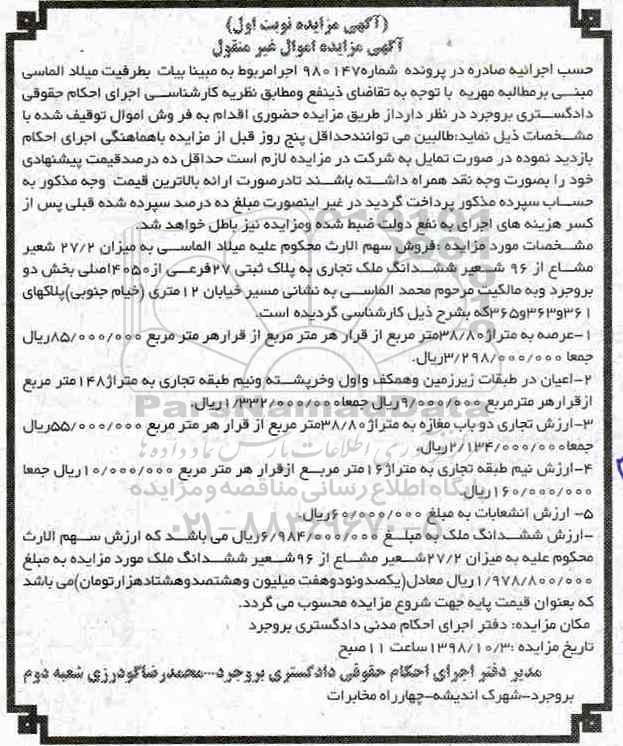 (آگهی مزایده نوبت اول)
آگهی مزایده اموال غیر منقول
حسب اجرائیه صادره در پرونده شماره۹۸۰۱۴۷ اجرامربوط به مبینا بیات بطرفیت میلاد الماسی
مبنی برمطالبه مهریه با توجه به تقاضای ذینفع ومطابق نظریه کارشناسی اجرای احکام حقوقی
دادگستری بروجرد در نظر دارداز طریق مزایده حضوری اقدام به فروش اموال توقیف شده با
مشخصات ذیل نماید:طالبین می توانندحداقل پنج روز قبل از مزایده باهماهنگی اجرای احکام
بازدید نموده در صورت تمایل به شرکت در مزایده لازم است حداقل ده درصدقیمت پیشنهادی
خود را بصورت وجه نقد همراه داشته باشند تادرصورت ارائه بالاترین قیمت وجه مذکور به
حساب سپرده مذکور پرداخت گردید در غیر اینصورت مبلغ ده درصد سپرده شده قبلی پس از
کسر هزینه های اجرای به نفع دولت ضبط شده ومزایده نیز باطل خواهد شد.
مشخصات مورد مزایده :فروش سهم الارث محکوم علیه میلاد الماسی به میزان ۲۷/۲ شعیر
مشاع از ۹۶ شعیر ششدانگ ملک تجاری به پلاک ثبتی ۲۷فرعی از۴۰۵۰اصلی بخش دو
بروجرد وبه مالکیت مرحوم محمد الماسی به نشانی مسیر خیابان ۱۲متری (خیام جنوبی)پلاکهای
۳۶۱و۳۶۳و۳۶۵که بشرح ذیل کارشناسی گردیده است.
۱-عرصه به متراژ۳۸/۸۰متر مربع از قرار هر متر مربع از قرارهر متر مربع ۸۵/۰۰۰/۰۰۰ریال
جمعا ۳/۲۹۸/۰۰۰/۰۰۰ریال.
۲-اعیان در طبقات زیرزمین وهمکف واول وخرپشته ونیم طبقه تجاری به متراژ۱۴۸متر مربع
ازقرارهر مترمربع ۹/۰۰۰/۰۰۰ریال جمعا۱/۳۳۲/۰۰۰/۰۰۰ریال.
۳-ارزش تجاری دو باب مغازه به متراژ۳۸/۸۰متر مربع از قرار هر متر مربع ۵۵/۰۰۰/۰۰۰ریال
جمعا۲/۱۳۴/۰۰۰/۰۰۰ریال.
۴-ارزش نیم طبقه تجاری به متراژ۱۶متر مربع ازقرار هر متر مربع ۱۰/۰۰۰/۰۰۰ریال جمعا
۱۶۰/۰۰۰/۰۰۰ریال.
۵- ارزش انشعابات به مبلغ ۶۰/۰۰۰/۰۰۰ریال.
-ارزش ششدانگ ملک به مبلغ ۶/۹۸۴/۰۰۰/۰۰۰ریال می باشد که ارزش سهم الارث
محکوم علیه به میزان ۲۷/۲شعیر مشاع از ۹۶شعیر ششدانگ ملک مورد مزایده به مبلغ
۱/۹۷۸/۸۰۰/۰۰۰ریال معادل(یکصدونودوهفت میلیون وهشتصدوهشتادهزارتومان)می باشد
که بعنوان قیمت پایه جهت شروع مزایده محسوب می گردد.
مکان مزایده: دفتر اجرای احکام مدنی دادگستری بروجرد
تاریخ مزایده :۱۳۹۸/۱۰/۳ساعت ۱۱صبح
مدیر دفتر اجرای احکام حقوقی دادگستری بروجرد---محمدرضاگودرزی شعبه دوم
بروجرد-شهرک اندیشه-چهارراه مخابرات
ParsNamadData
پایگاه اطلاع رسانی مناقصه و مزایده
۰۲۱-۸۸۳۴۹۶۷۰-۵